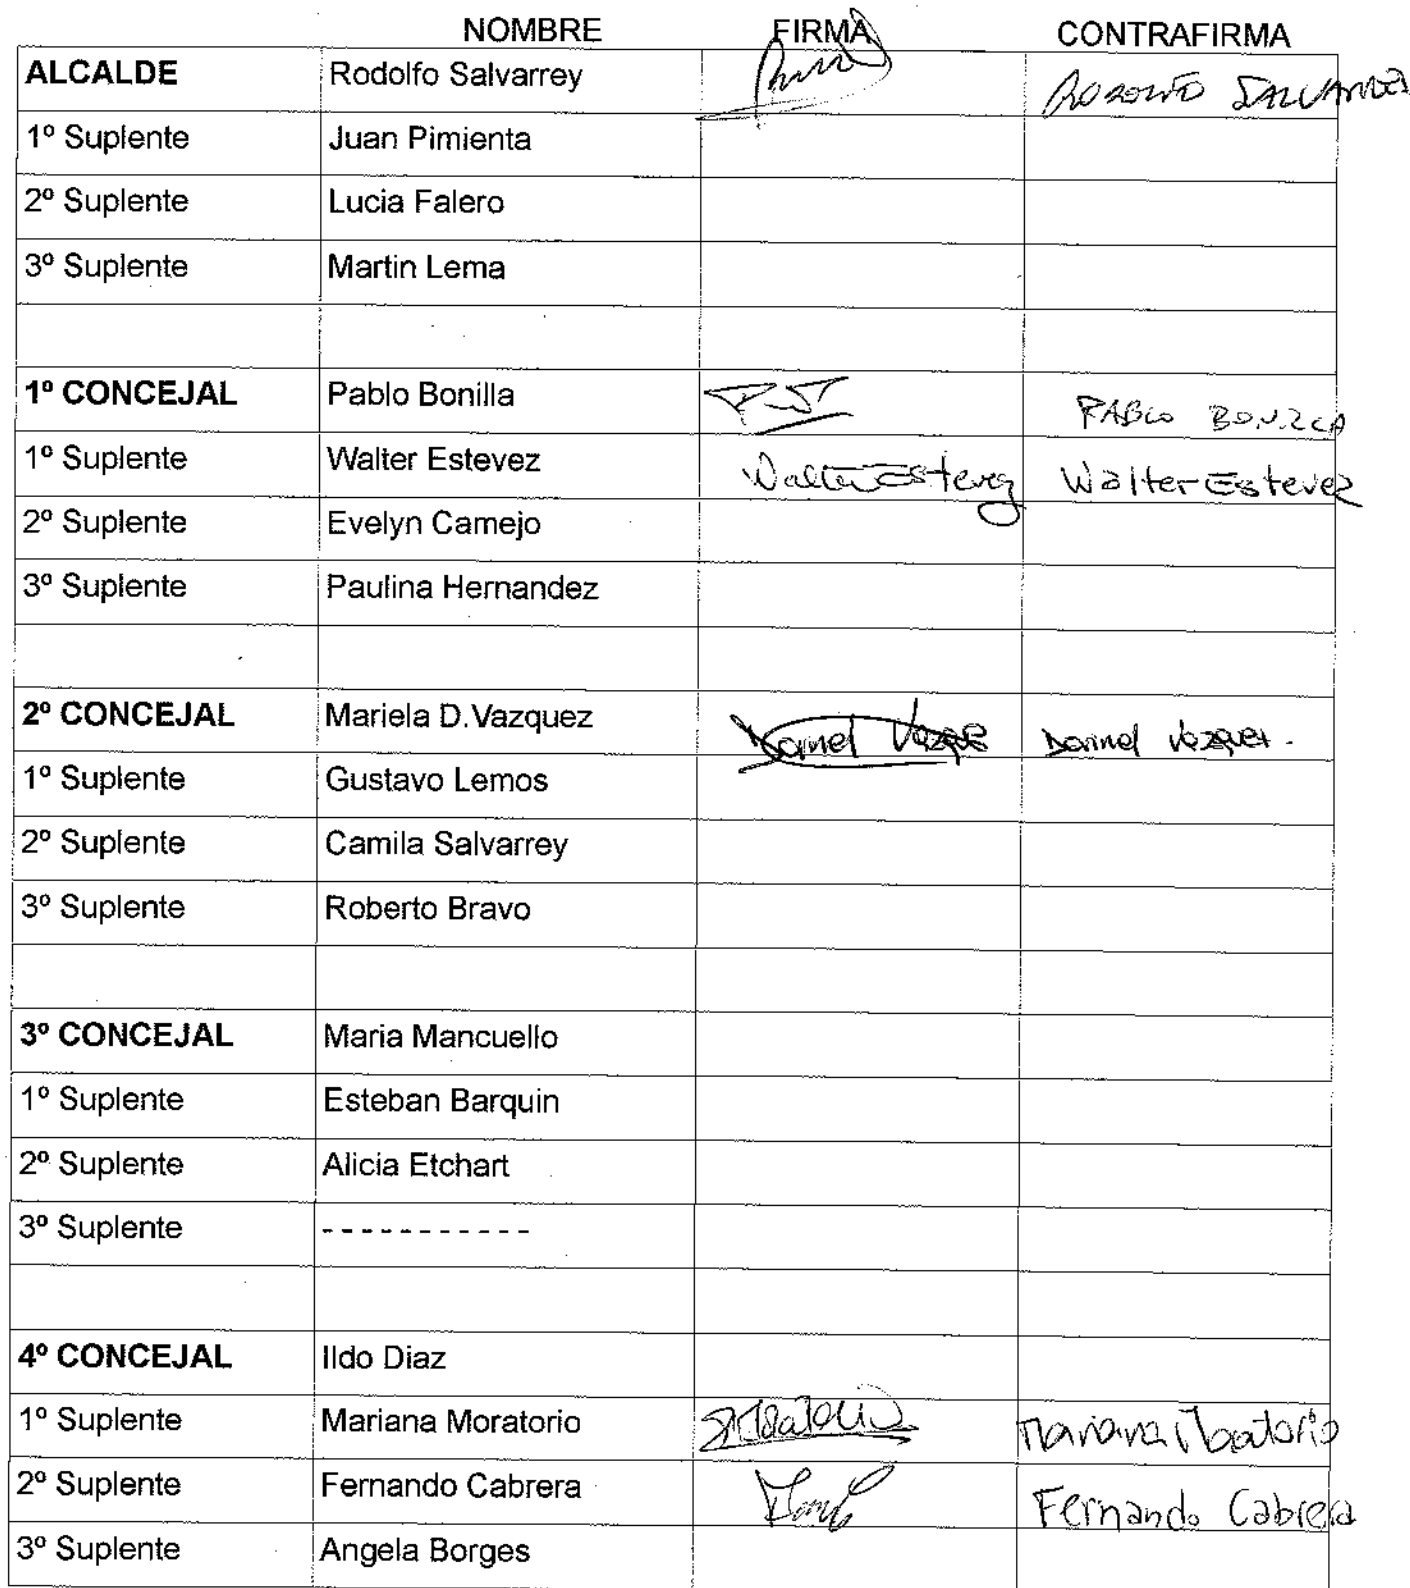 NOMBRE FIRMA CONTRAFIRMA
ALCALDE Rodolfo Salvarrey RODOLFO SALVARREY
1º Suplente Juan Pimienta
2º Suplente Lucia Falero
3º Suplente Martin Lema
1º CONCEJAL Pablo Bonilla PABLO BONILLA
1º Suplente Walter Estevez Walter Estevez Walter Estevez
2º Suplente Evelyn Camejo
3º Suplente Paulina Hernandez
2º CONCEJAL Mariela D.Vazquez Dorinel Vazquez.
1º Suplente Gustavo Lemos
2º Suplente Camila Salvarrey
3º Suplente Roberto Bravo
3º CONCEJAL Maria Mancuello
1º Suplente Esteban Barquin
2º Suplente Alicia Etchart
3º Suplente - - - - - - - - - - -
4º CONCEJAL Ildo Diaz
1º Suplente Mariana Moratorio Mariana Moratorio
2º Suplente Fernando Cabrera Fernando Cabrera
3º Suplente Angela Borges